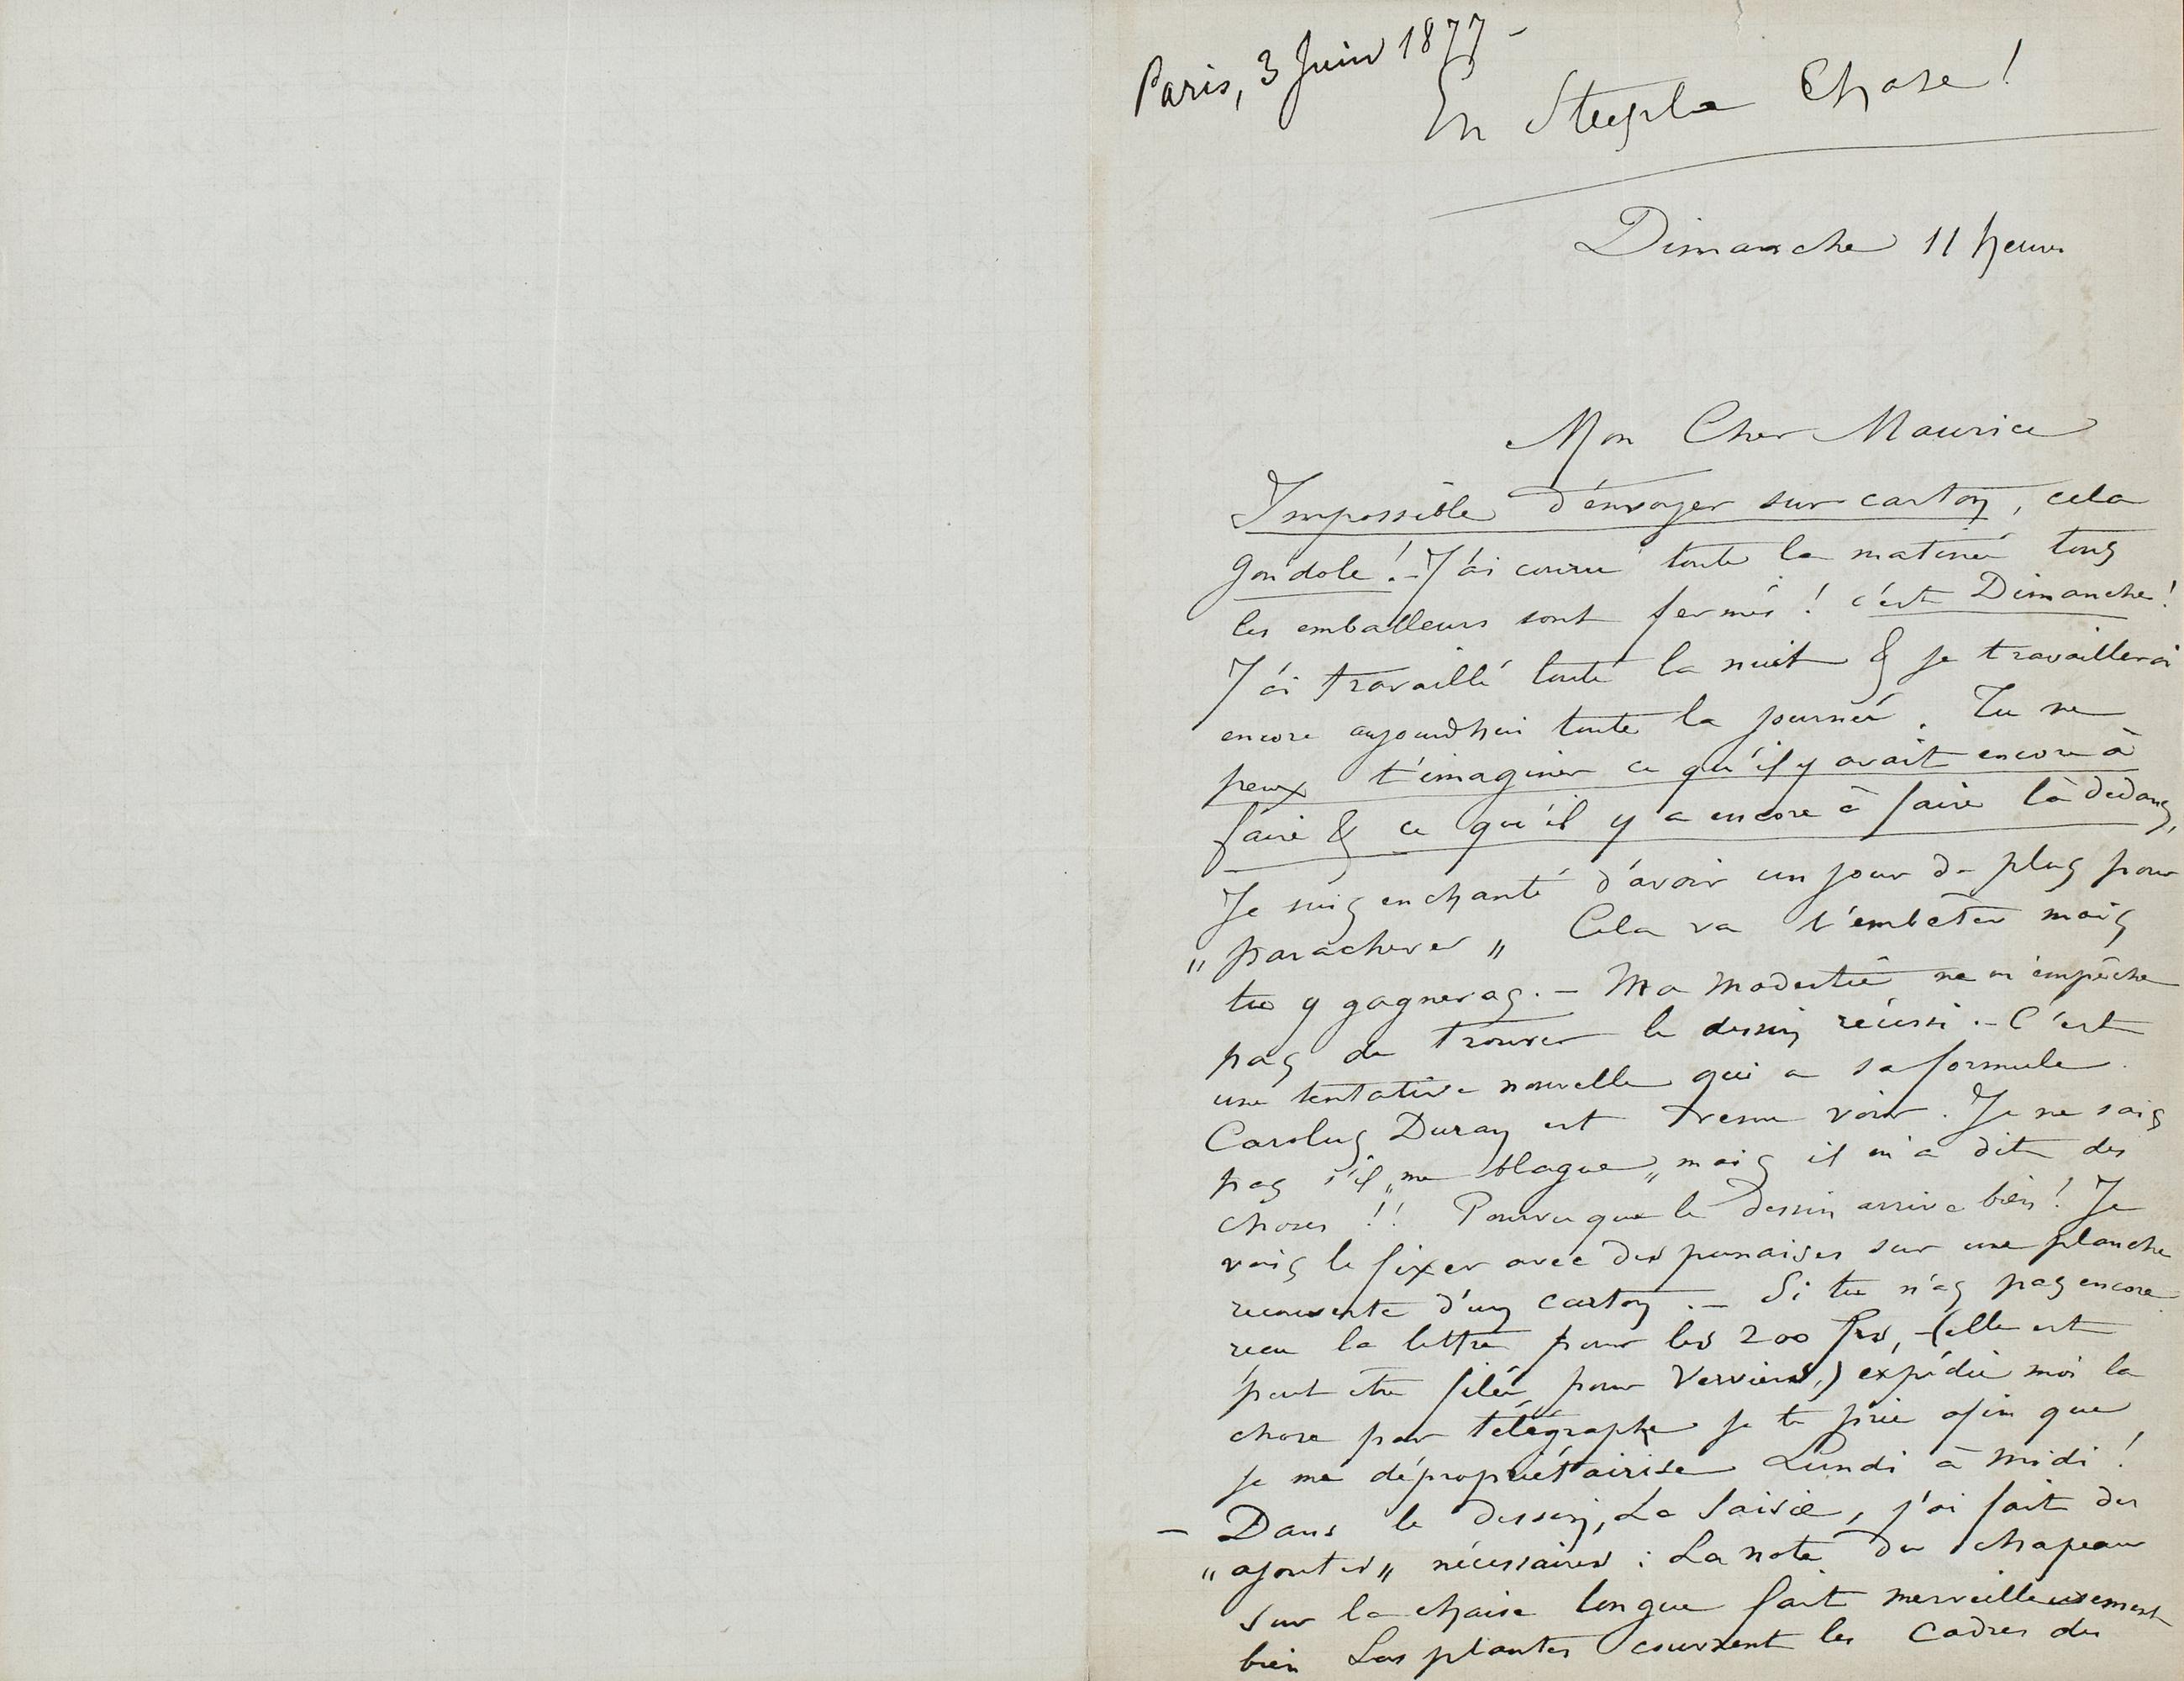 Paris, 3 Juin 1877 -
En Steeple Chase!
Dimanche 11 heures
Mon Cher Maurice
Impossible d'envoyer sur carton, cela
gondole! - J'ai couru toute la matinée tous
les emballeurs sont fermés! c'est Dimanche!
J'ai travaillé toute la nuit & je travaillerai
encore aujourdhui toute la journée. Tu ne
peux t'imaginer ce qu'il y avait encore à
faire & ce qu'il y a encore à faire là dedans,
Je suis enchanté d'avoir un jour de plus pour
„ parachever „ Cela va t'embêter mais
tu y gagneras. - Ma modestie ne m'empêche
pas de trouver le dessin réussi. - C'est
une tentative nouvelle qui a sa formule.
Carolus Duran est venu voir. Je ne sais
pas s'il „me blague„ mais il m'a dit des
choses!! Pourvu que le dessin arrive bien! Je
vais le fixer avec des punaises sur une planche
recouverte d'un carton. - Si tu n'as pas encore
reçu la lettre pour les 200 frs, - (elle est
peut être filée pour Verviers,) expédie moi la
chose par télégraphe je te prie afin que
je me dépropriétairise Lundi à midi!
- Dans le dessin, La Saisie, j'ai fait des
„ ajoutes „ nécessaires : La note du chapeau
sur la chaise longue fait merveilleusement
bien Les plantes couvrent les cadres du